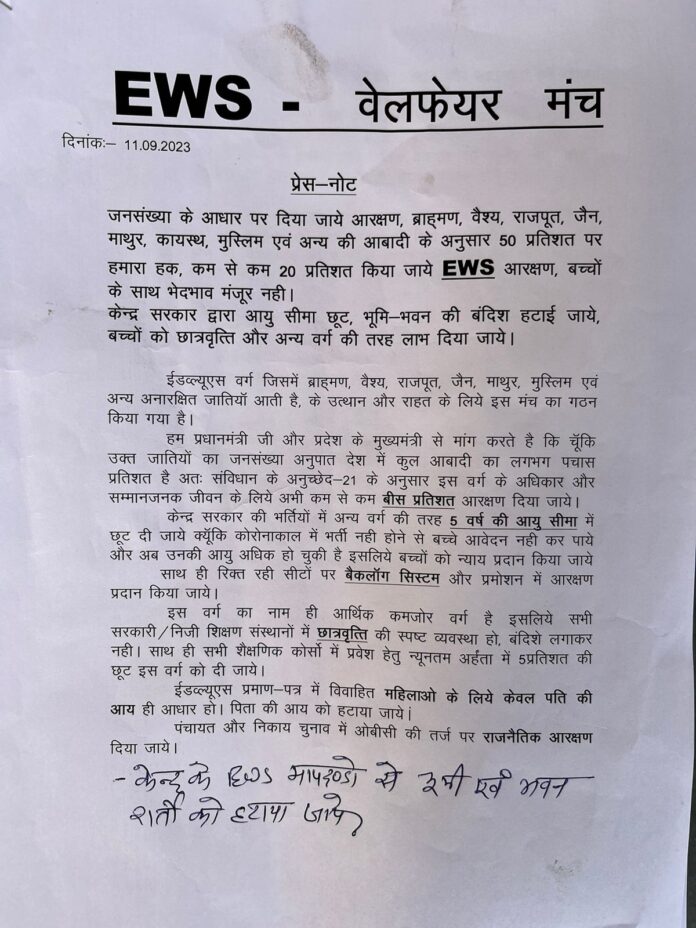 EWS - वेलफेयर मंच
दिनांकः– 11.09.2023
प्रेस–नोट
जनसंख्या के आधार पर दिया जाये आरक्षण, ब्राह्मण, वैश्य, राजपूत, जैन,
माथुर, कायस्थ, मुस्लिम एवं अन्य की आबादी के अनुसार 50 प्रतिशत पर
हमारा हक, कम से कम 20 प्रतिशत किया जाये EWS आरक्षण, बच्चों
के साथ भेदभाव मंजूर नही।
केन्द्र सरकार द्वारा आयु सीमा छूट, भूमि–भवन की बंदिश हटाई जाये,
बच्चों को छात्रवृत्ति और अन्य वर्ग की तरह लाभ दिया जाये।
ईडव्ल्यूएस वर्ग जिसमें ब्राह्मण, वैश्य, राजपूत, जैन, माथुर, मुस्लिम एवं
अन्य अनारक्षित जातियॉ आती है, के उत्थान और राहत के लिये इस मंच का गठन
किया गया है।
हम प्रधानमंत्री जी और प्रदेश के मुख्यमंत्री से मांग करते है कि चूॅकि
उक्त जातियों का जनसंख्या अनुपात देश में कुल आबादी का लगभग पचास
प्रतिशत है अतः संविधान के अनुच्छेद–21 के अनुसार इस वर्ग के अधिकार और
सम्मानजनक जीवन के लिये अभी कम से कम बीस प्रतिशत आरक्षण दिया जाये।
केन्द्र सरकार की भर्तियों में अन्य वर्ग की तरह 5 वर्ष की आयु सीमा में
छूट दी जाये क्यूॅकि कोरोनाकाल में भर्ती नही होने से बच्चे आवेदन नही कर पाये
और अब उनकी आयु अधिक हो चुकी है इसलिये बच्चों को न्याय प्रदान किया जाये
साथ ही रिक्त रही सीटों पर बैकलॉग सिस्टम और प्रमोशन में आरक्षण
प्रदान किया जाये।
इस वर्ग का नाम ही आर्थिक कमजोर वर्ग है इसलिये सभी
सरकारी/निजी शिक्षण संस्थानों में छात्रवृत्ति की स्पष्ट व्यवस्था हो, बंदिशे लगाकर
नही। साथ ही सभी शैक्षणिक कोर्सो में प्रवेश हेतु न्यूनतम अर्हता में 5प्रतिशत की
छूट इस वर्ग को दी जाये।
ईडव्ल्यूएस प्रमाण–पत्र में विवाहित महिलाओ के लिये केवल पति की
आय ही आधार हो। पिता की आय को हटाया जाये।
पंचायत और निकाय चुनाव में ओबीसी की तर्ज पर राजनैतिक आरक्षण
दिया जाये।
- केन्द्र के EWS मापदण्डो से एवं भवन
शर्तो को हटाया जाये